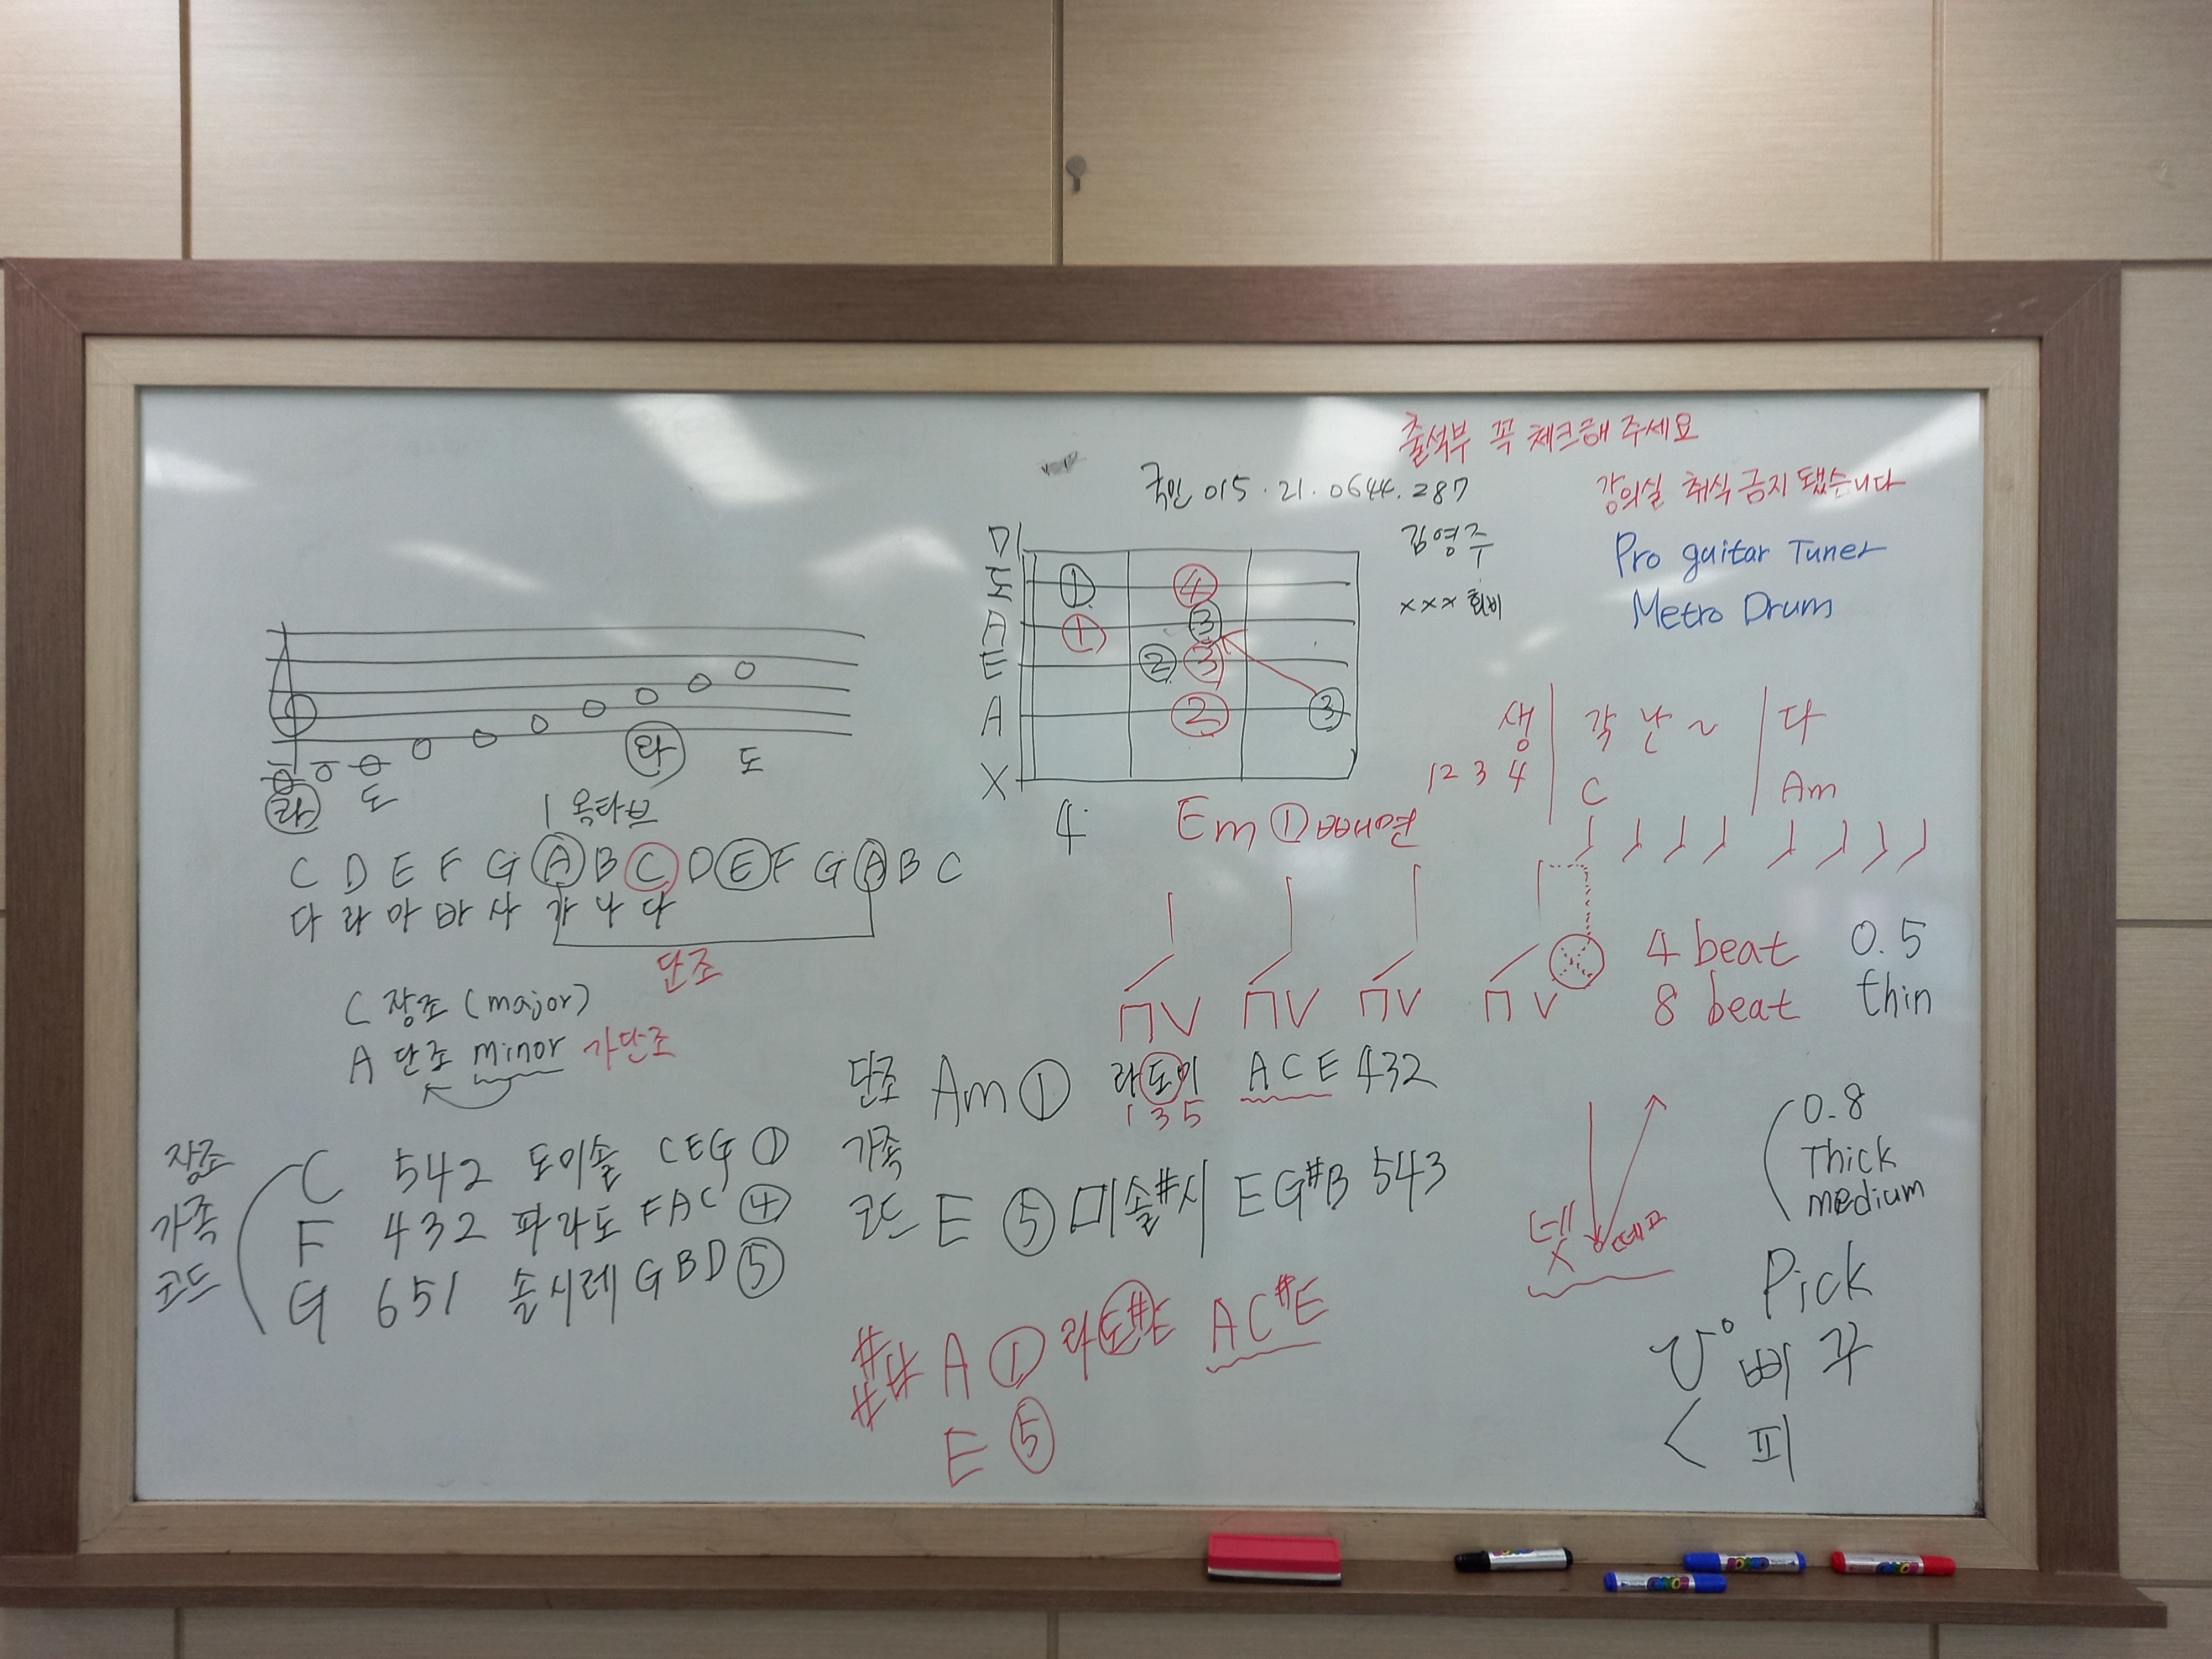 출석부 꼭 체크해 주세요
국민 015.21.0644.287
강의실 취식 금지 됐습니다
김영주
xxx 회비
Pro guitar Tuner
Metro Drum
미
도 ① ④
A ① ③
E ② ③
A ② ③
X
4
Em ① 빼면
생 각 난 ~ 다
1 2 3 4 C Am
라 도 라 도
1 옥타브
C D E F G A B C D E F G A B C
다 라 마 바 사 가 나 다
단조
C 장조 (major)
A 단조 minor 가단조
4 beat 0.5
8 beat thin
장조 가족 코드
C 542 도미솔 CEG ①
F 432 파라도 FAC ④
G 651 솔시레 GBD ⑤
단조 가족 코드
Am ① 라도미 ACE 432
1 3 5
E ⑤ 미솔#시 EG#B 543
### A ① 라도#E AC#E
E ⑤
X
0.8
Thick
medium
Pick
삐 꾸
피